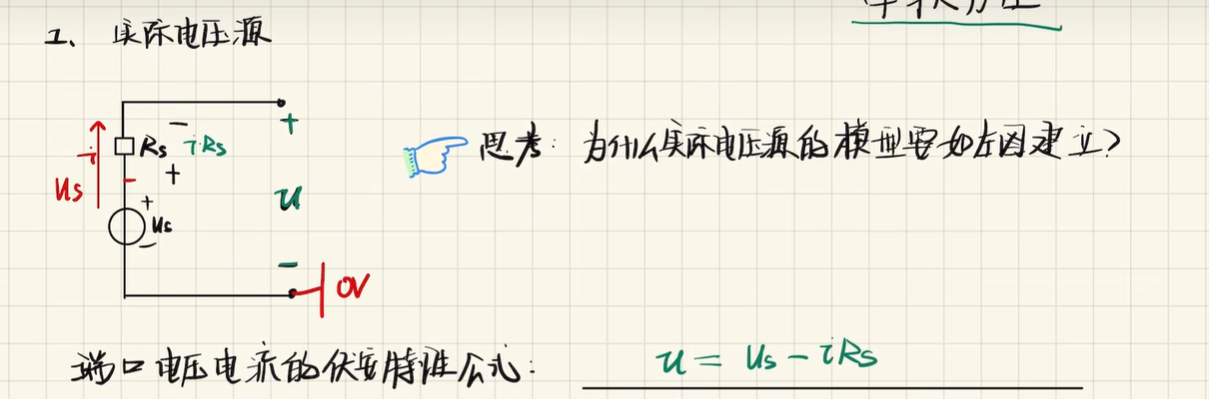 1、 实际电压源
- i Rs
Rs
+
i
Us
+
us
-
+
u
-
0V
思考: 为什么实际电压源的模型要如左图建立?
端口电压电流的伏安特性公式: u = Us - iRs